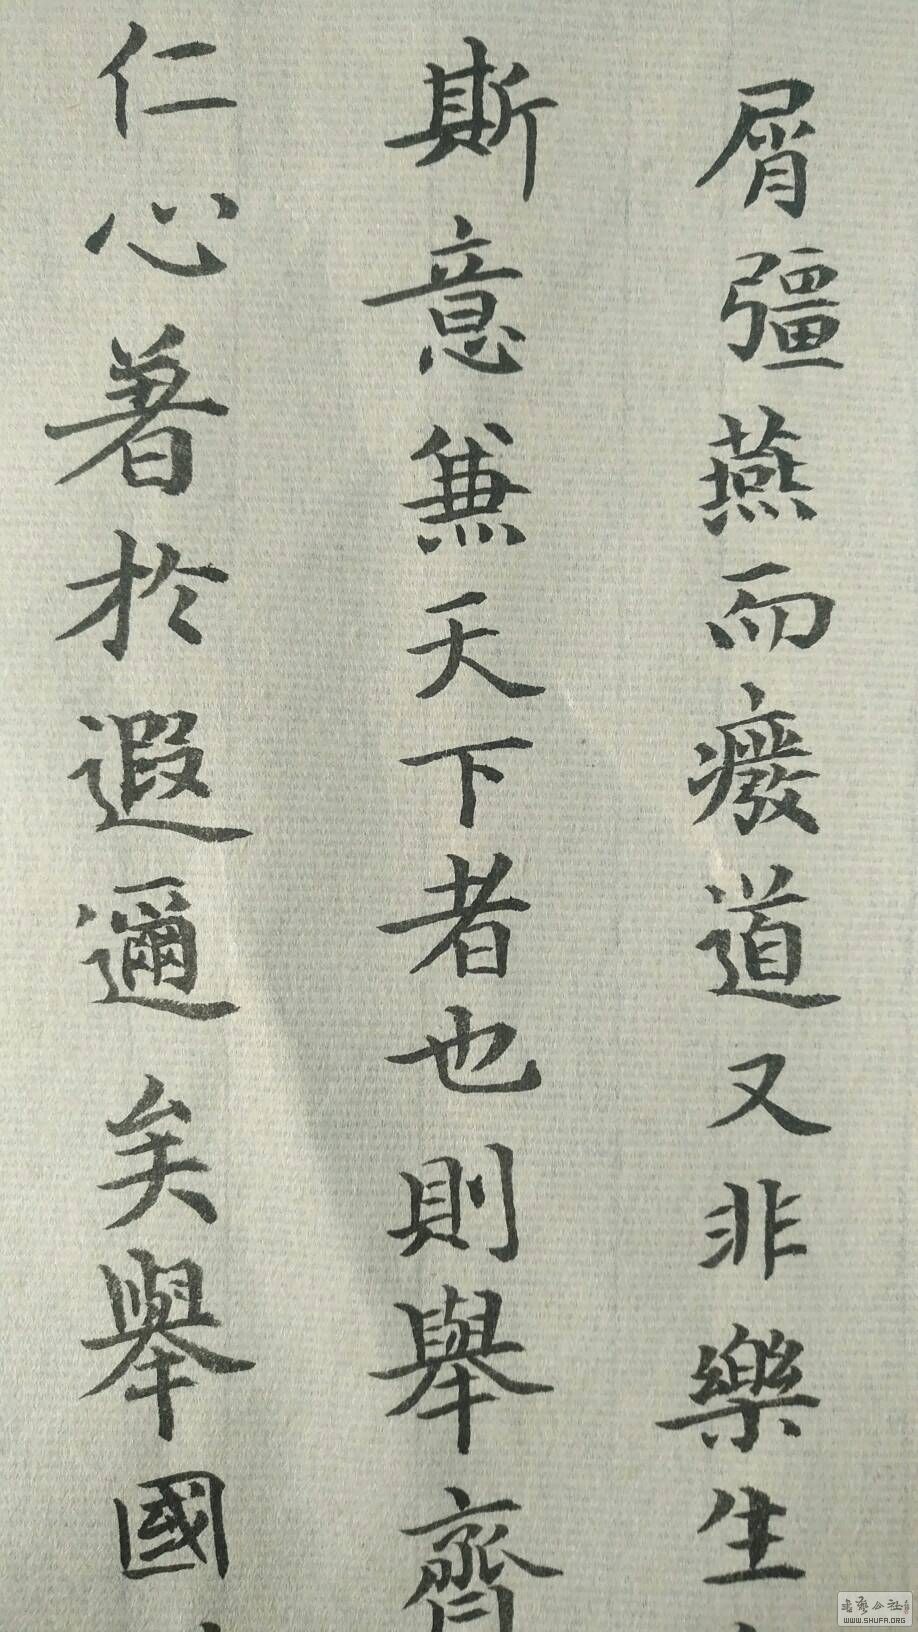 屑彊燕而癈道又非樂生
斯意兼天下者也則舉齊
仁心著於遐邇矣舉國
書藝公社
WWW.SHUFA.ORG